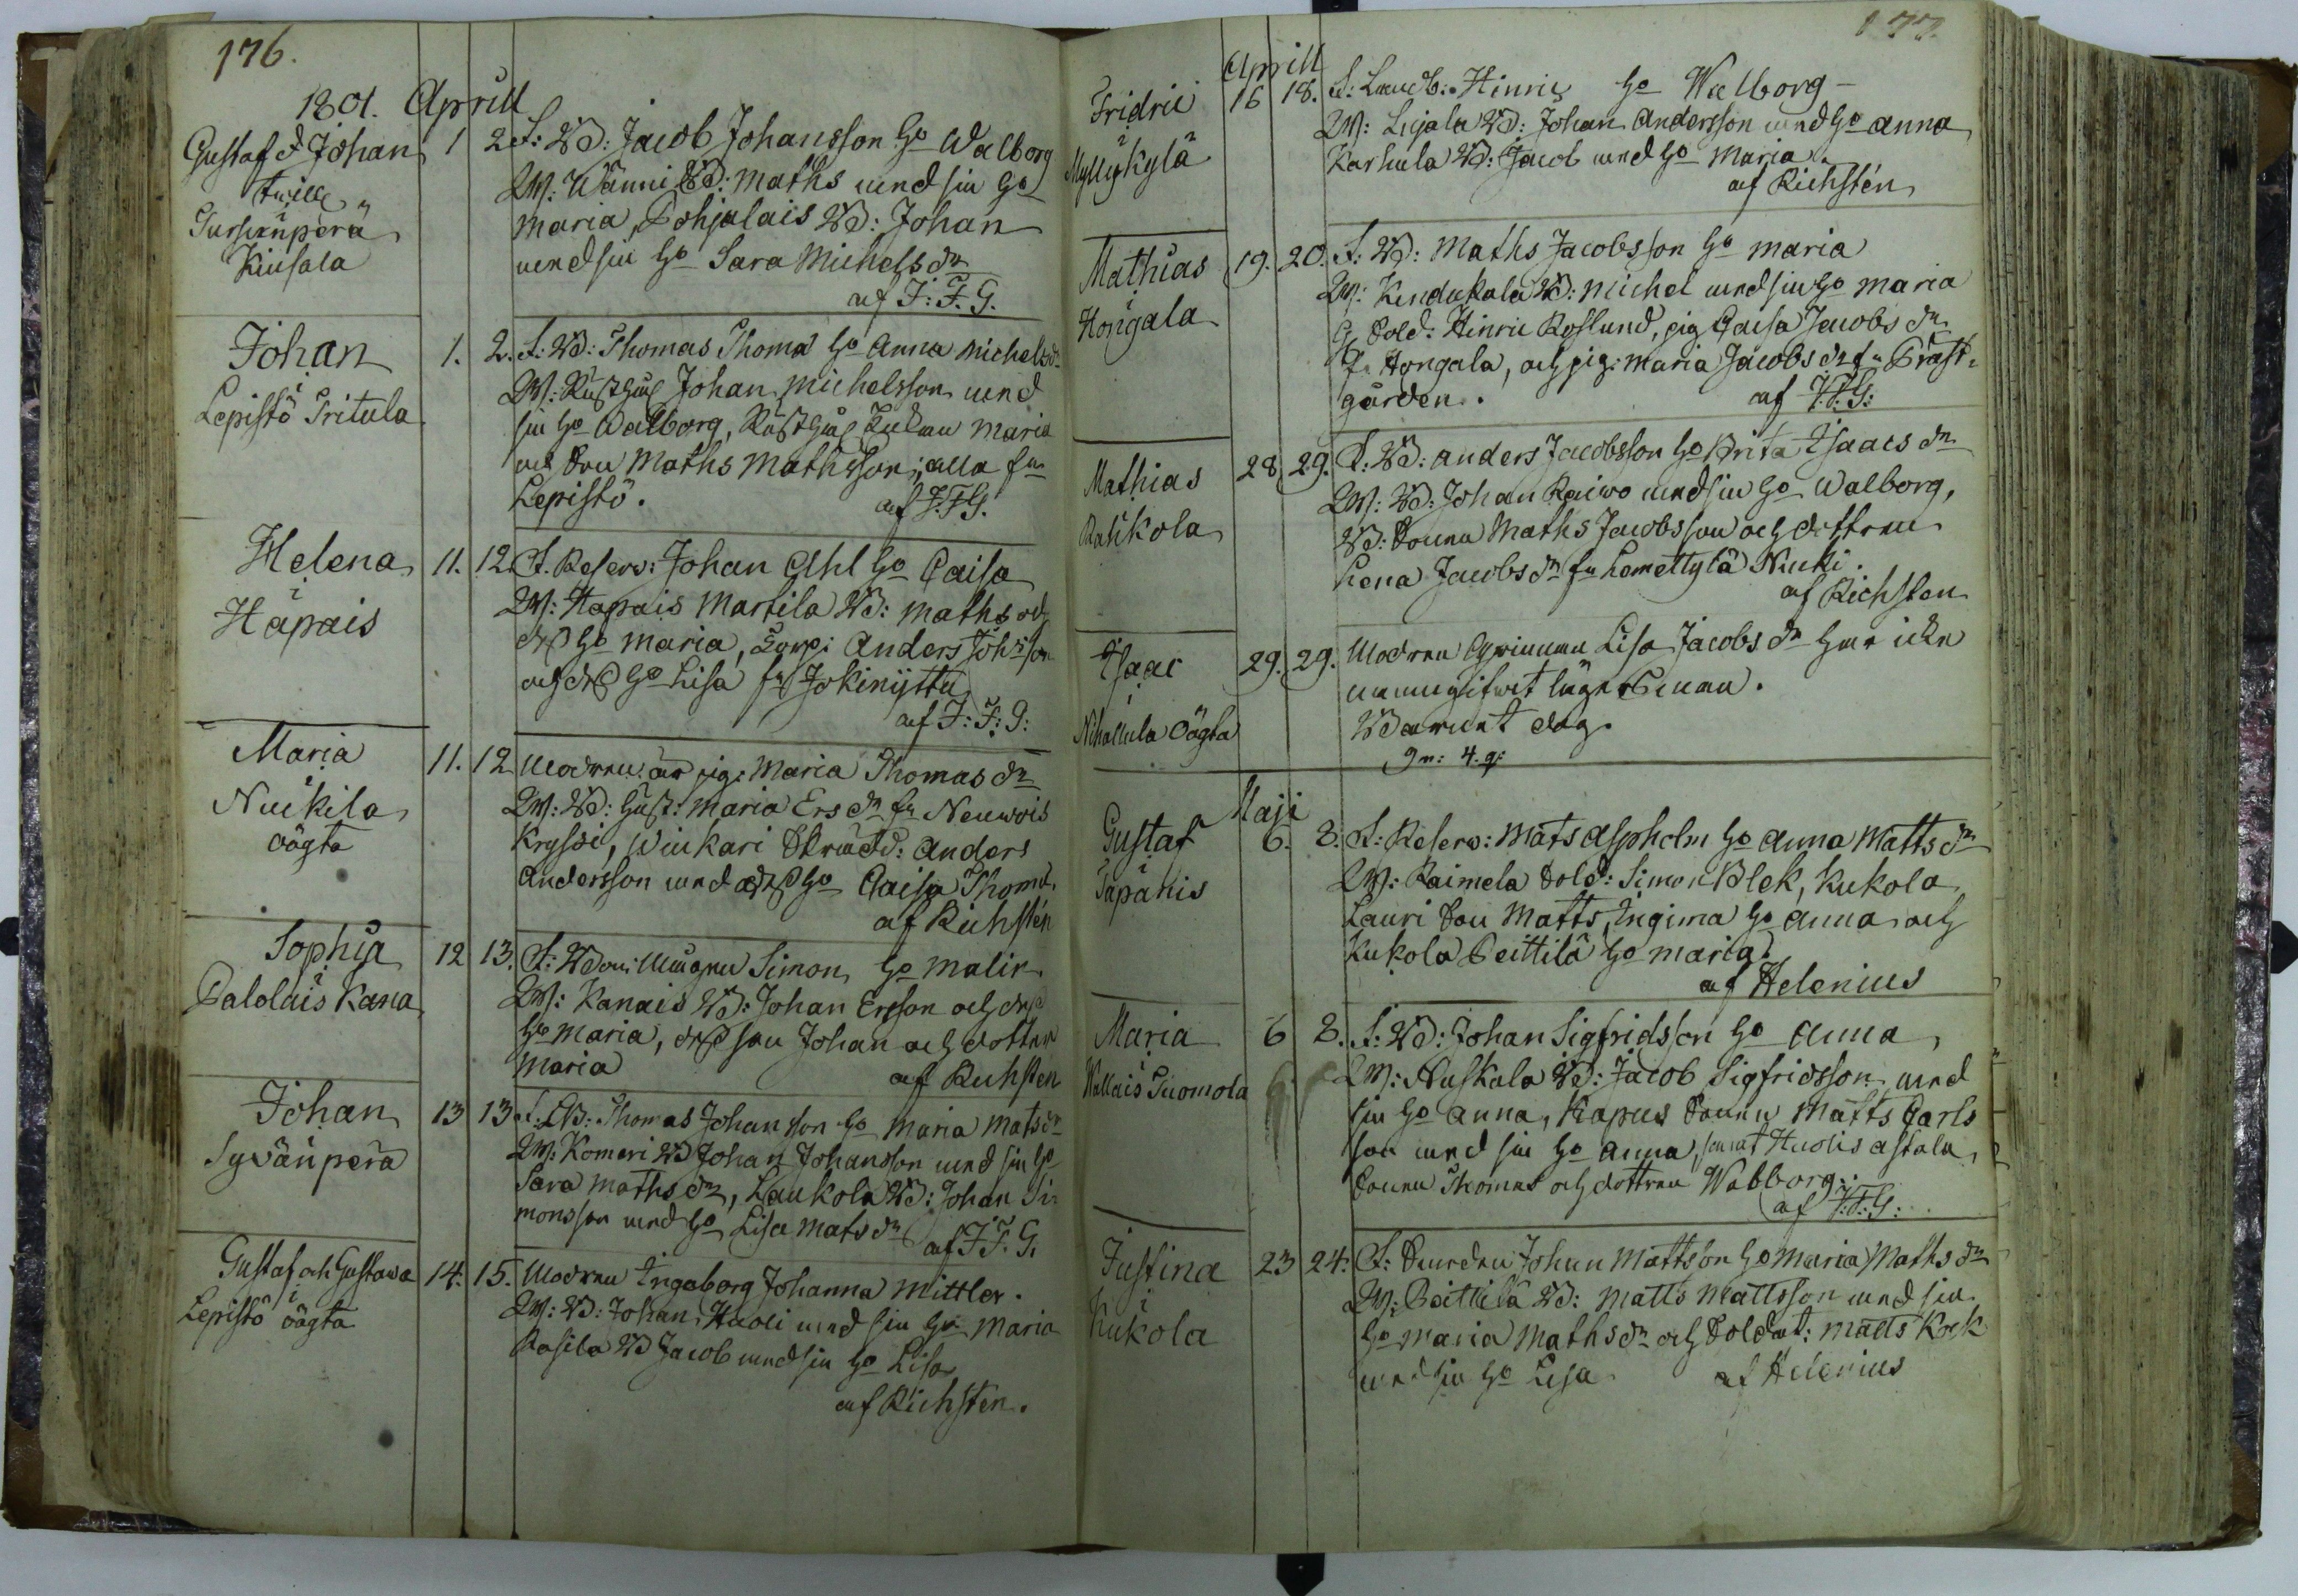 176.
1801. Aprill
Gustaf & Johan
1 2 F: Bd: Jacob Johansson ho Walborg
W: Wänni Bd: Maths med sin ho
Maria, Pohjalais Bd: Johan
med sin ho Sara Michelsdr
af J: F. G.
Kiusala
Johan
Lepistö Pritula
1. 2. F: Bd: Thomas Thoma ho Anna Michelsdr
W: Rusth: Johan Michelsson med
sin ho Walborg, Maria
och Maths Mathsson; alla fr
Lepistö. af J. F. G.
Helena
i
Hapais
11. 12. F. Reserv: Johan Ahl ho Caisa
W: Hapais Martila Bd: Maths och
ds ho Maria, Anders Joh:sson
och ds ho Lisa fr Jokinjttu
af J: F: G:
Maria
i
Nuikila
oägta
11. 12 Modren är pig: Maria Thomasdr
W: Bd: hust: Maria Ersdr fr Neuwois
Kryssi, Winkari Anders
Andersson med ds ho Caisa Thoms.
af Richstén
Sophia
i
Palolais Kana
12 13. F: Simon ho Malin
W: Kanais Bd: Johan Ersson och ds
ho Maria, ds son Johan och dotter
Maria af Richsten
Johan
i
Syvänperä
13 13 F: Bd: Thomas Johansson ho Maria Matsdr
W: Komeri Bd Johan Johansson med sin ho
Sara Mathsdr, Laukola Bd: Johan Si-
monsson med ho Lisa Matsdr af J. F. G.
Gustaf och Gustava
i
Lepistö oägta
14. 15. Modren Ingeborg Johanna Mittler.
W: Bd: Johan Huoli med sin ho Maria
Rasila Bd Jacob med sin ho Lisa
af Richsten.
177.
Aprill
Fridric
i
Myllykylä
16 18. F: Landb: Hinric ho Walborg –
W: Lejala Bd: Johan Andersson med ho Anna
Karhula Bd: Jacob med ho Maria.
af Richstén
Mathias
i
Hongala
19. 20. F: Bd: Maths Jacobsson ho Maria
W: Bd: Michel med sin ho Maria
Sold: Hinric Roslund, pig Caisa Jacobsdr
fr Hongala, och pig: Maria Jacobsdr fr Präst-
gården. af J. F. G:
Mathias
28 29. F: Bd: Anders Jacobsson ho Brita Isaacsdr
W: Bd: Johan Raiwo med sin ho Walborg,
Bd: Sonen Maths Jacobsson och dottren
Lena Jacobsdr fr Lemettylä Nuiki.
af Richsten
Isaac
i
oägta
29. 29. Modren Lisa Jacobsdr har icke
namngifvit lägersman.
dag.
Maji
Gustaf
i
Tapanis
6. 8. F: Reserv: Mats Aspholm ho Anna Mattsdr
W: Raimela Sold: Simon Blek, Kukola
Lauri Son Matts, Ingima ho Anna och
Kukola Peittilä ho Maria.
af Helenius
Maria
i
Wallais Tuomola
6 8. F: Bd: Johan Sigfridsson ho Anna,
W: Auskala Bd: Jacob Sigfridsson med
sin ho Anna, Kapus Sonen Matts Carls
son med sin ho Anna, samt Huolis
Sonen Thomas och dottren Walborg.
af J. F. G:
Justina
i
Kukola
23 24. F: Johan Mattsson ho Maria Mathsdr
W: Peittilä Bd: Matts Mattsson med sin
ho Maria Mathsdr och Soldat: Matts Kock
med sin ho Lisa af Helenius